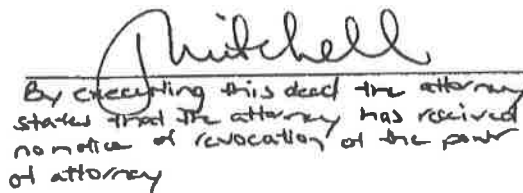 JMitchell
By executing this deed the attorney
states that the attorney has received
no notice of revocation of the power
of attorney